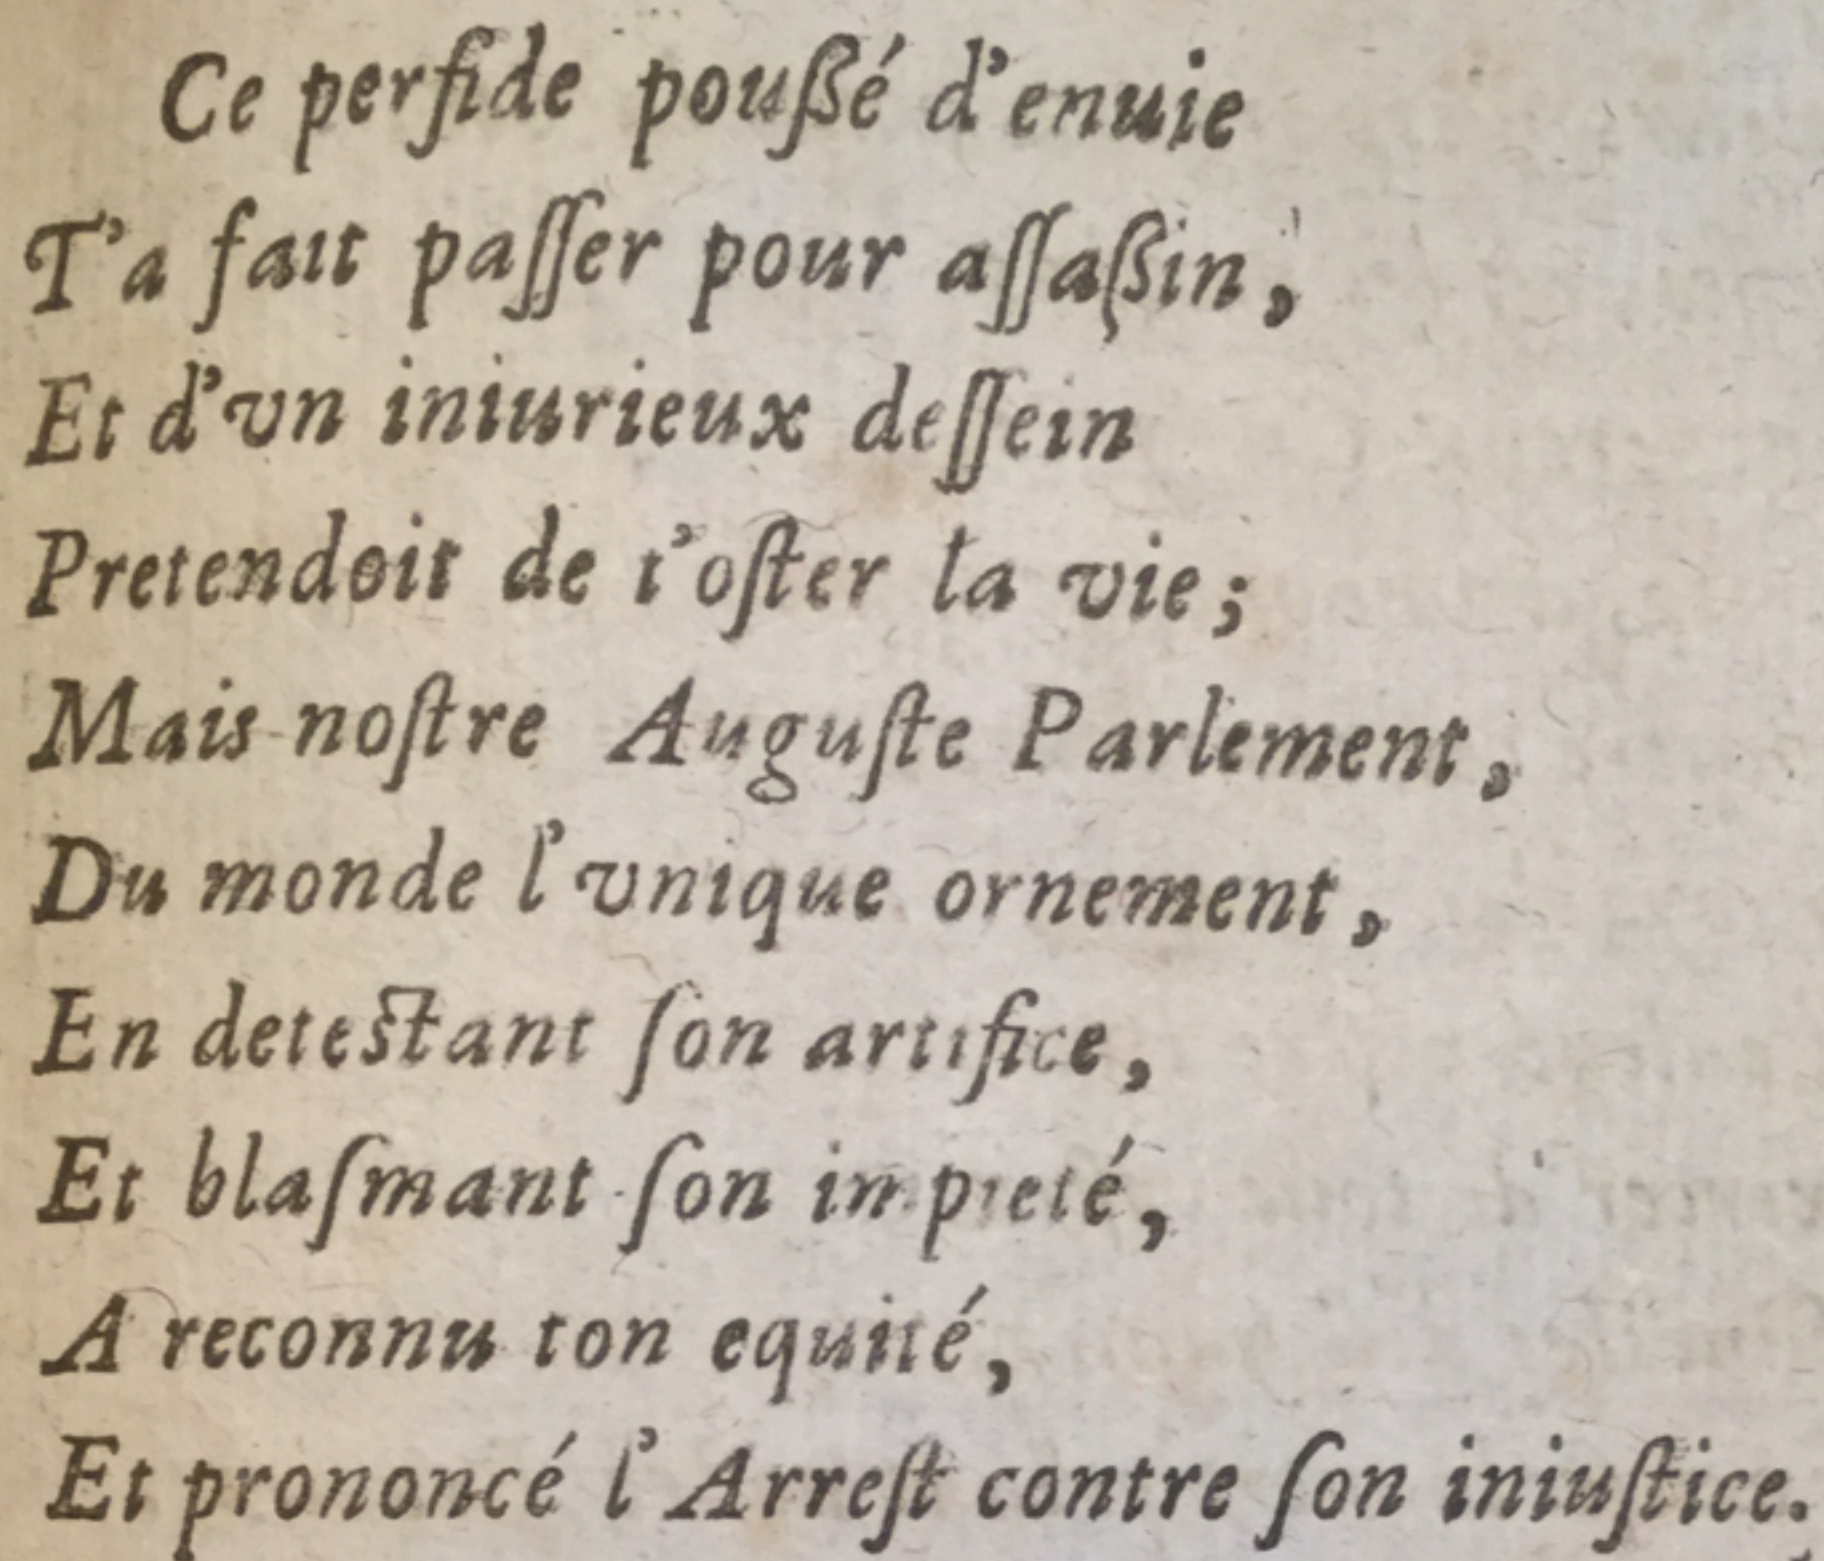 Ce perfide pouſſé d'enuie
T'a fait paſſer pour aſſaſſin,
Et d'vn iniurieux deſſein
Pretendoit de t'oſter la vie;
Mais noſtre Auguſte Parlement,
Du monde l'vnique ornement,
En deteſtant ſon artifice,
Et blaſmant ſon impieté,
A reconnu ton equité,
Et prononcé l'Arreſt contre ſon iniuſtice.